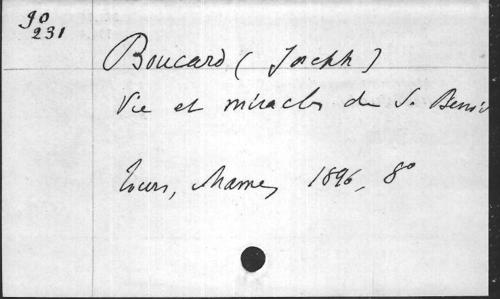 90
231
Boucard (Joseph)
Vie et miracles de S. Benoi
Tours, Mame, 1896, 8°